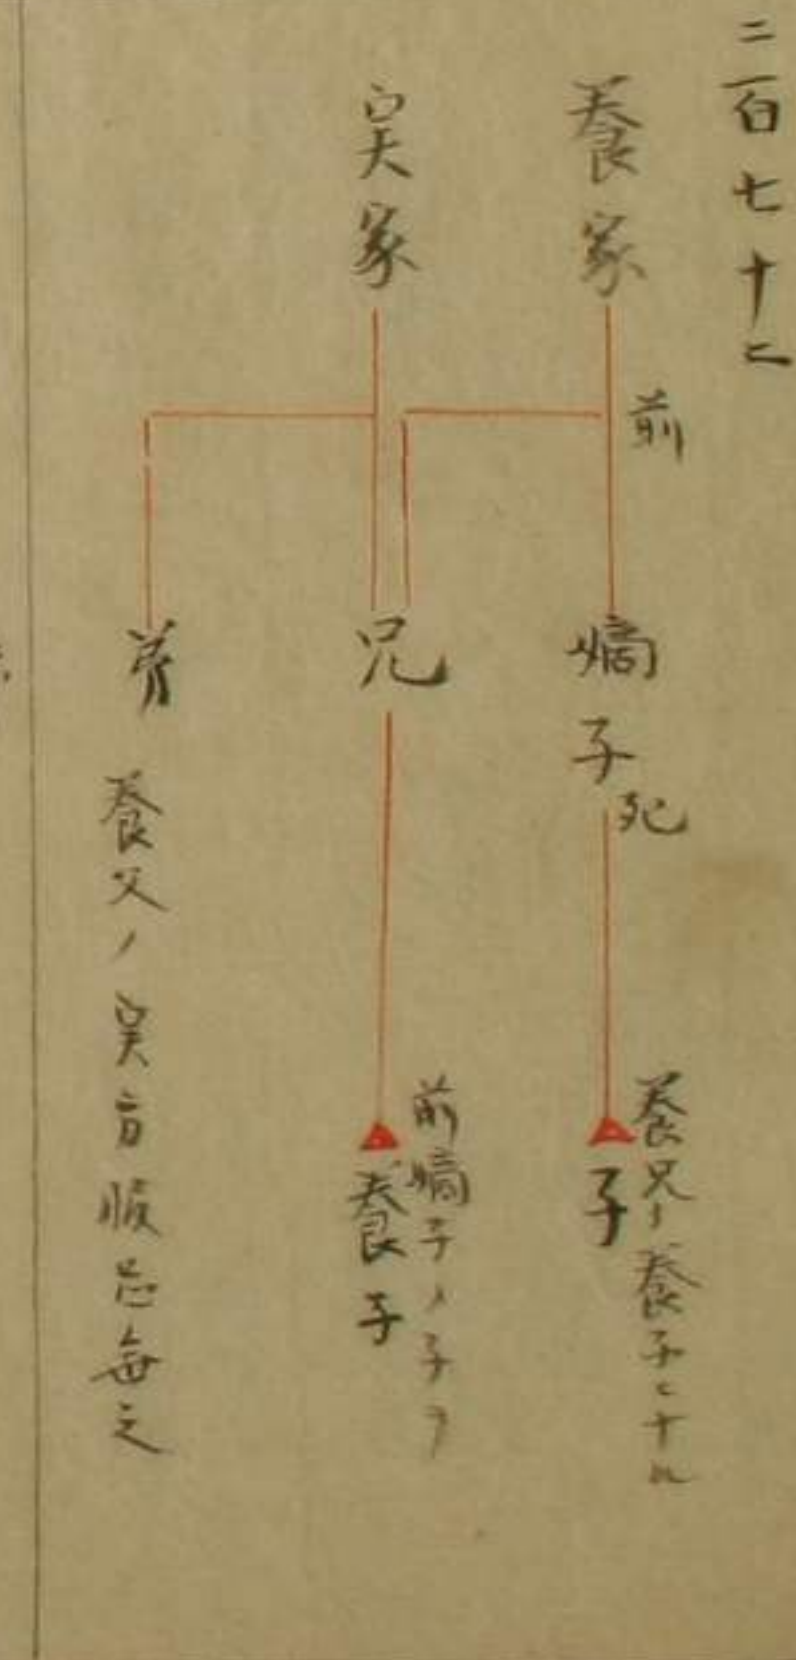 二百七十二
養家
前
嫡子死
養兄ノ養子ニナル
子
実家
兄
前嫡子ノ子ヲ
養子
弟
養父ノ実方服忌無之